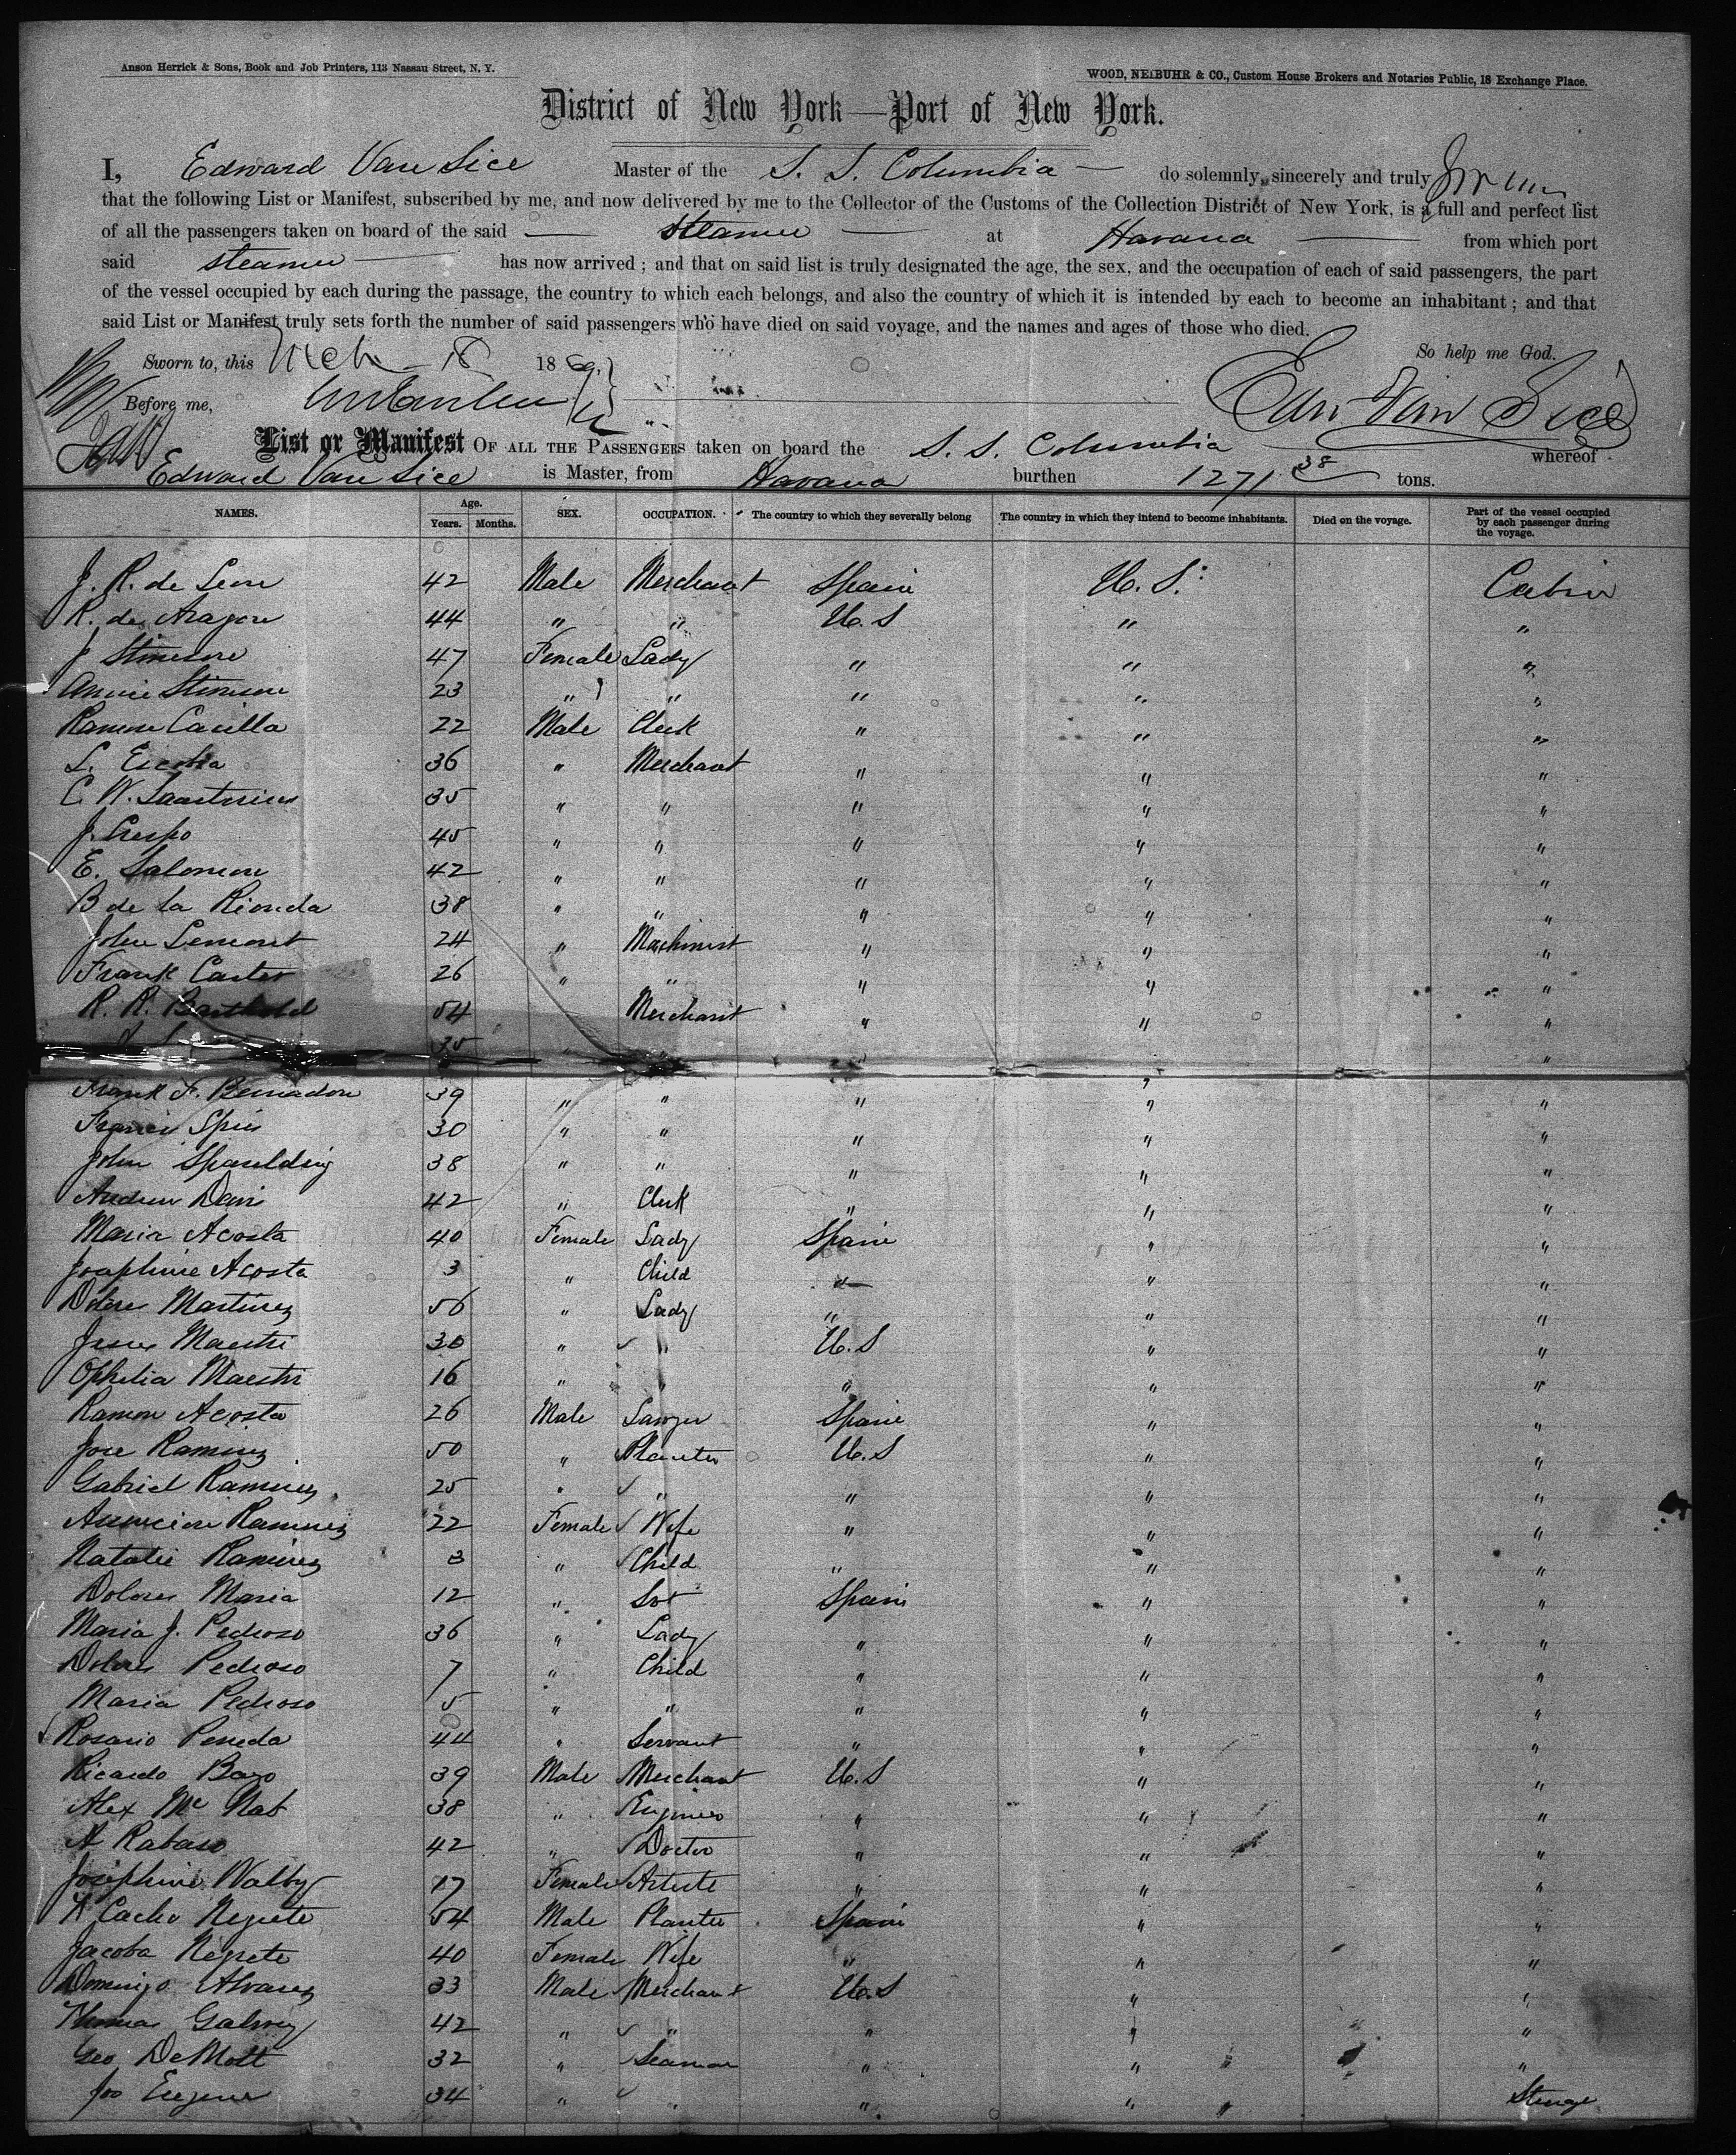 Anson Herrick & Sons, Book and Job Printers, 113 Nassau Street, N. Y.
WOOD, NEIBUHR & CO., Custom House Brokers and Notaries Public, 18 Exchange Place.
District of New York—Port of New York.
I, Edward Van Sice Master of the S. S. Columbia — do solemnly, sincerely and truly
that the following List or Manifest, subscribed by me, and now delivered by me to the Collector of the Customs of the Collection District of New York, is a full and perfect list
of all the passengers taken on board of the said — Steamer — at Havana — from which port
said Steamer — has now arrived ; and that on said list is truly designated the age, the sex, and the occupation of each of said passengers, the part
of the vessel occupied by each during the passage, the country to which each belongs, and also the country of which it is intended by each to become an inhabitant ; and that
said List or Manifest truly sets forth the number of said passengers who have died on said voyage, and the names and ages of those who died.
So help me God.
Sworn to, this Mch 18 1869.
Before me,
Edw Van Sice
List or Manifest OF ALL THE PASSENGERS taken on board the S. S. Columbia whereof
Edward Van Sice is Master, from Havana burthen 1271 38 tons.
NAMES. Age. Years. Months. SEX. OCCUPATION. The country to which they severally belong The country in which they intend to become inhabitants. Died on the voyage. Part of the vessel occupied by each passenger during the voyage.
J. R. de Leon 42 Male Merchant Spain U. S. Cabin
R. de Aragon 44 " " U. S " "
J Stimson 47 Female Lady " " "
Annie Stimson 23 " " " " "
Ramon Casilla 22 Male Clerk " " "
L. Escobia 36 " Merchant " " "
C. W. Saartorius 35 " " " " "
J. Crespo 45 " " " " "
E. Salomon 42 " " " " "
B de la Rionda 38 " " " " "
John Lemont 24 " Machinist " " "
Frank Carter 26 " " " " "
R. R. Barthold 54 Merchant " " "
35 " "
Frank F. Bernadon 39 " " " " "
Francis Spies 30 " " " " "
John Spaulding 38 " " " " "
Andrew Davis 42 " Clerk " " "
Maria Acosta 40 Female Lady Spain " "
Josephine Acosta 3 " Child " " "
Dolores Martinez 56 " Lady " " "
Jesus Maestri 30 " " U. S " "
Ophelia Maestri 16 " " " " "
Ramon Acosta 26 Male Lawyer Spain " "
Jose Ramirez 50 " Planter U. S " "
Gabriel Ramirez 25 " " " " "
Asuncion Ramirez 22 Female Wife " " "
Natalie Ramirez 3 " Child " " "
Dolores Maria 12 " Svt Spain " "
Maria J. Pedroso 36 " Lady " " "
Dolores Pedroso 7 " Child " " "
Maria Pedroso 5 " " " " "
Rosario Peneda 44 " Servant " " "
Ricardo Bazo 39 Male Merchant U. S " "
Alex Mc Nab 38 " Engineer " " "
A Rabaso 42 " Doctor " " "
Josephine Walby 17 Female Artiste " " "
Cacho Negrete 54 Male Planter Spain " "
Jacoba Negrete 40 Female Wife " " "
Domingo Alvarez 33 Male Merchant U. S " "
Thomas Galwey 42 " " " " "
Geo DeMott 32 " Seaman " " "
Jos Eugene 34 " " " " Steerage